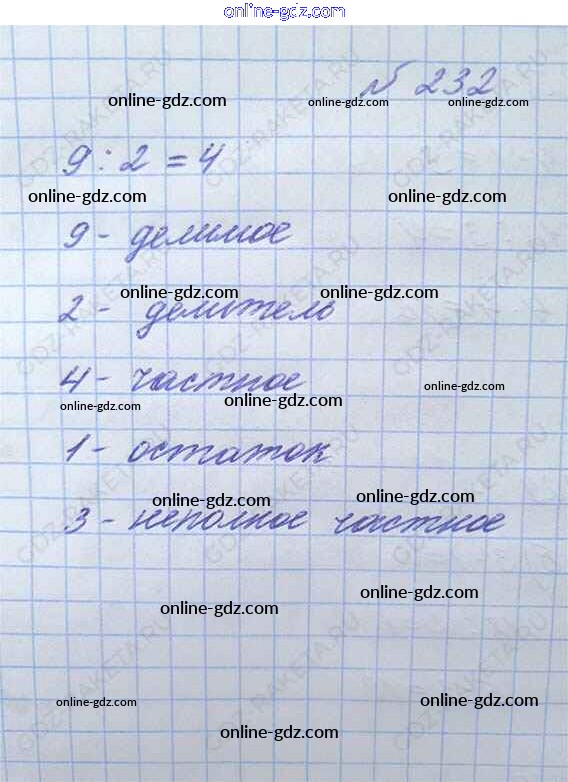 online-gdz.com
№ 232
online-gdz.com online-gdz.com online-gdz.com
9 : 2 = 4
online-gdz.com online-gdz.com
9 - делимое
online-gdz.com online-gdz.com
2 - делитель
4 - частное
online-gdz.com
online-gdz.com online-gdz.com
1 - остаток
online-gdz.com online-gdz.com
3 - неполное частное
online-gdz.com
online-gdz.com
online-gdz.com online-gdz.com
online-gdz.com
GDZ-RAKETA.RU